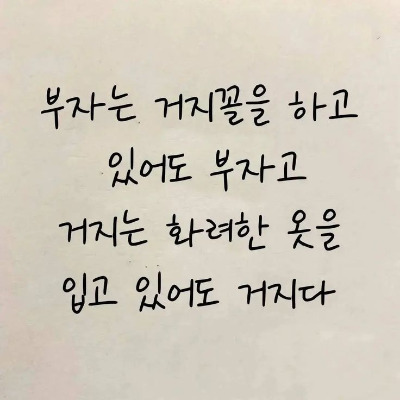 부자는 거지꼴을 하고
있어도 부자고
거지는 화려한 옷을
입고 있어도 거지다